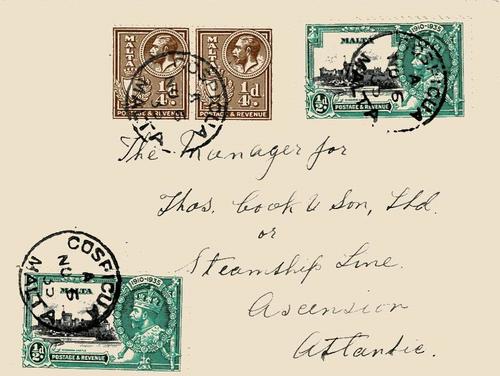 MALTA
1/4d
POSTAGE & REVENUE
MALTA
1/4d
POSTAGE & REVENUE
COSPICUA
MALTA
1910-1935
MALTA
1/2d
POSTAGE & REVENUE
COSPICUA
MALTA
The Manager for
Thos. Cook & Son, Ltd.
or
Steamship Line.
Ascension
Atlantic.
COSPICUA
MALTA
1910-1935
MALTA
1/2d
POSTAGE & REVENUE